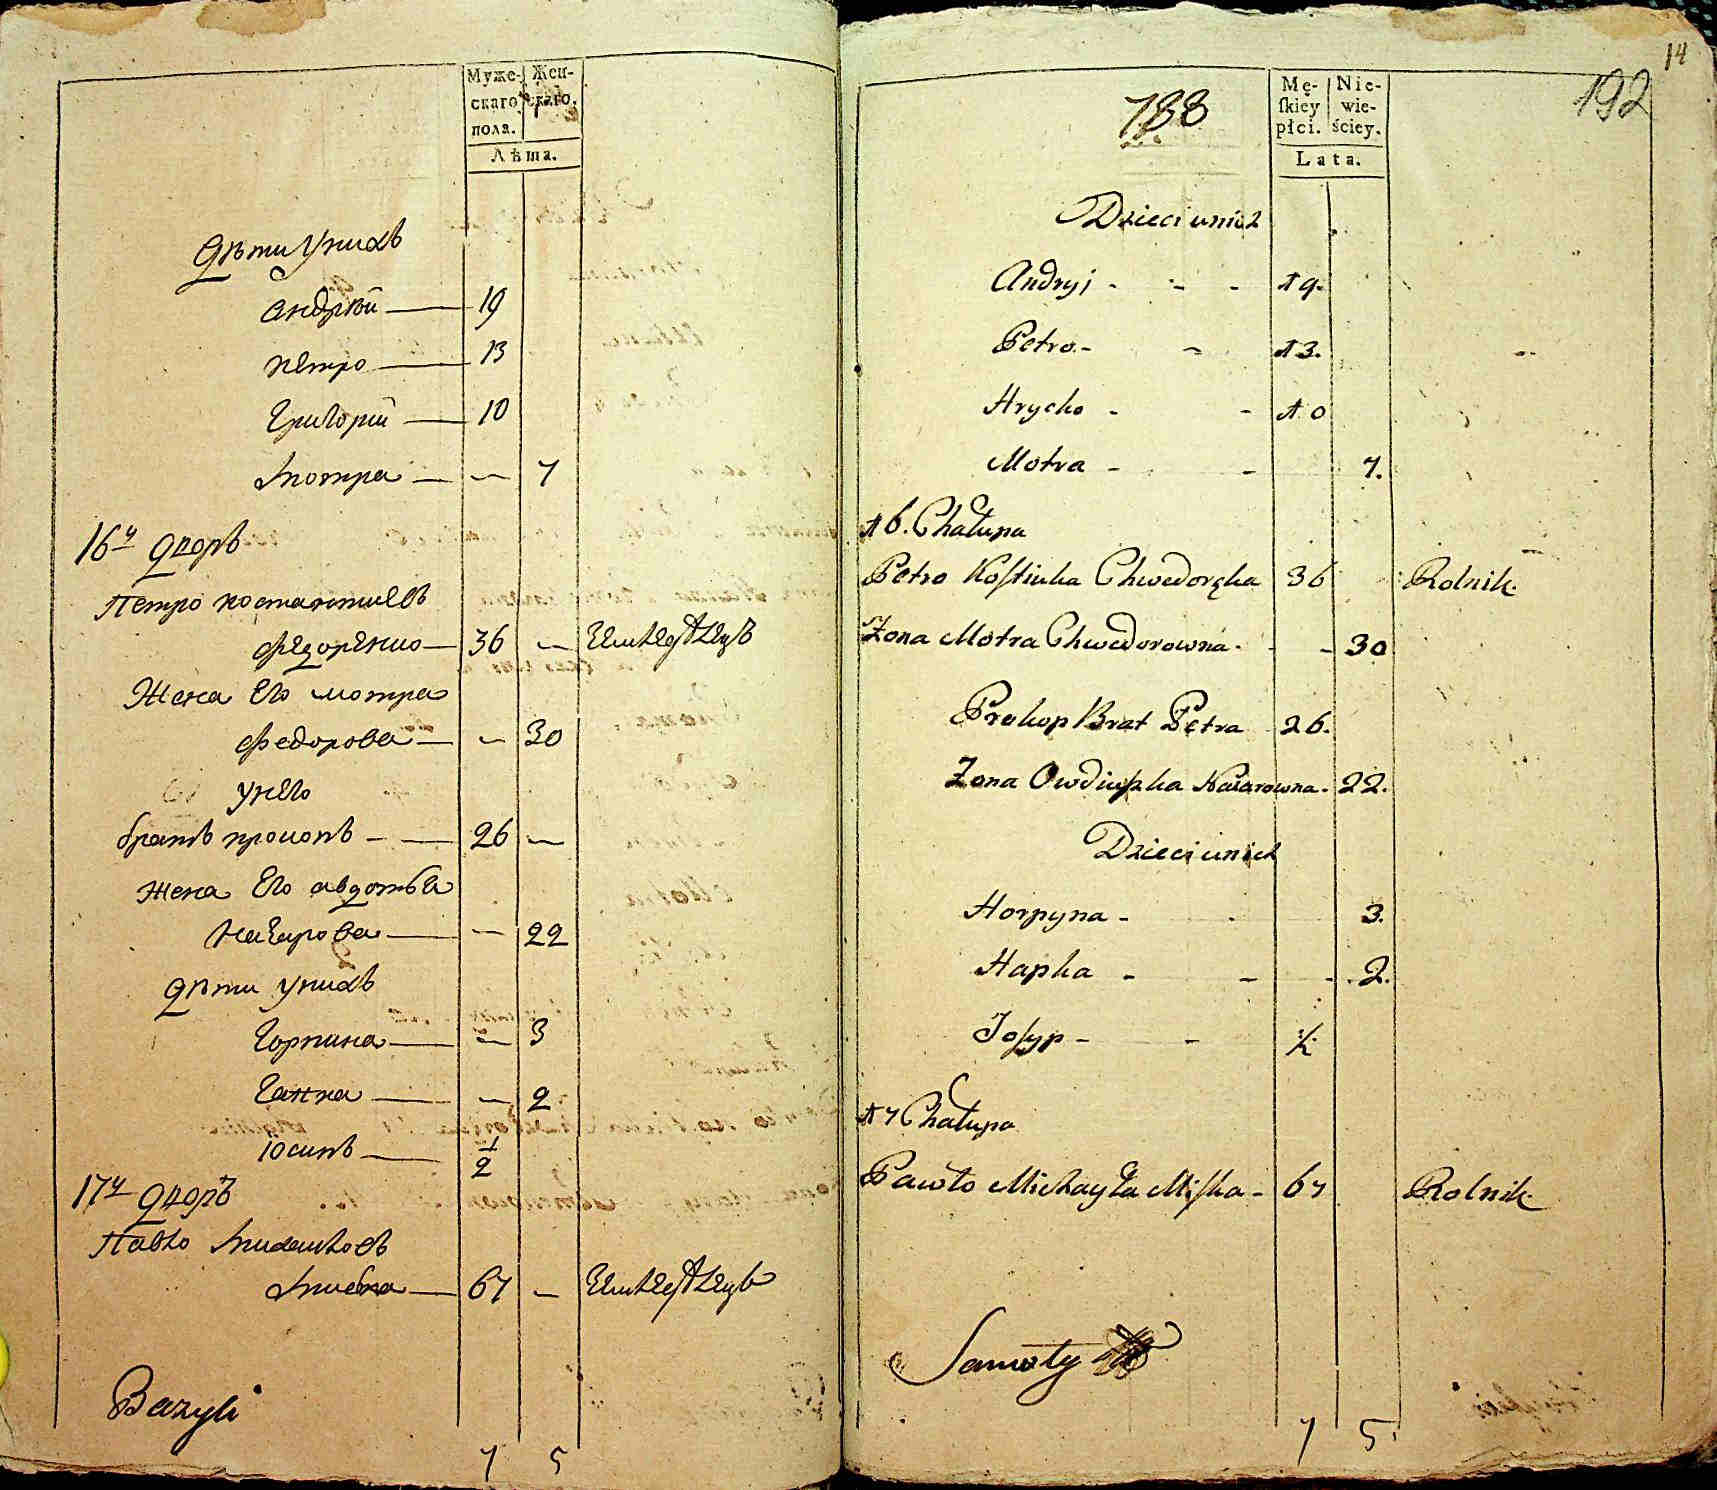 Муже-
скаго
пола.
Жен-
скаго.
Лѣта.
Дѣти у нихъ
Андрѣй — 19
Петро — 13
Григорій — 10
Мотра — — 7
16й дворъ
Петро Костантиевъ
Федоренко — 36 —
Жена Его мотра
Федорова — — 30
У него
братъ прокопъ — — 26 —
жена Его авдотья
Назарова — — 22
дѣти у нихъ
Горпина — — 3
Гапка — — 2
Юсипъ — 1/2
17й дворъ
Павло Михайловъ
Миска — 67 —
Bazyli
7 5
14
192
788
Mę-
ſkiey
płci.
Nie-
wie-
ściey.
Lata.
Dzieci u nich
Andryj - - - 19.
Petro - - 13.
Hrycko - - 10
Motra - - 7.
16. Chałupa
Petro Koſtiuka Chwedoręka 36 Rolnik.
Zona Motra Chwedorowna - - 30
Prokop Brat Petra 26.
Zona Owdiuszka Nazarowna - 22.
Dzieci u nich
Horpyna - - 3.
Hapka - - - 2.
Joſyp - - ½
17 Chałupa
Pawło Michayła Miſka - 67 Rolnik.
7 5.